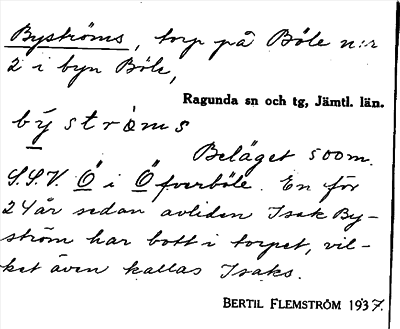 Byströms, torp på Böle n:r
2 i byn Böle,
Ragunda sn och tg, Jämtl. län.
býströms
Beläget 500m.
S.S.V. Ö i Öfverböle. En för
24 år sedan avliden Isak By-
ström har bott i torpet, vil-
ket även kallas Isaks.
BERTIL FLEMSTRÖM 1937.